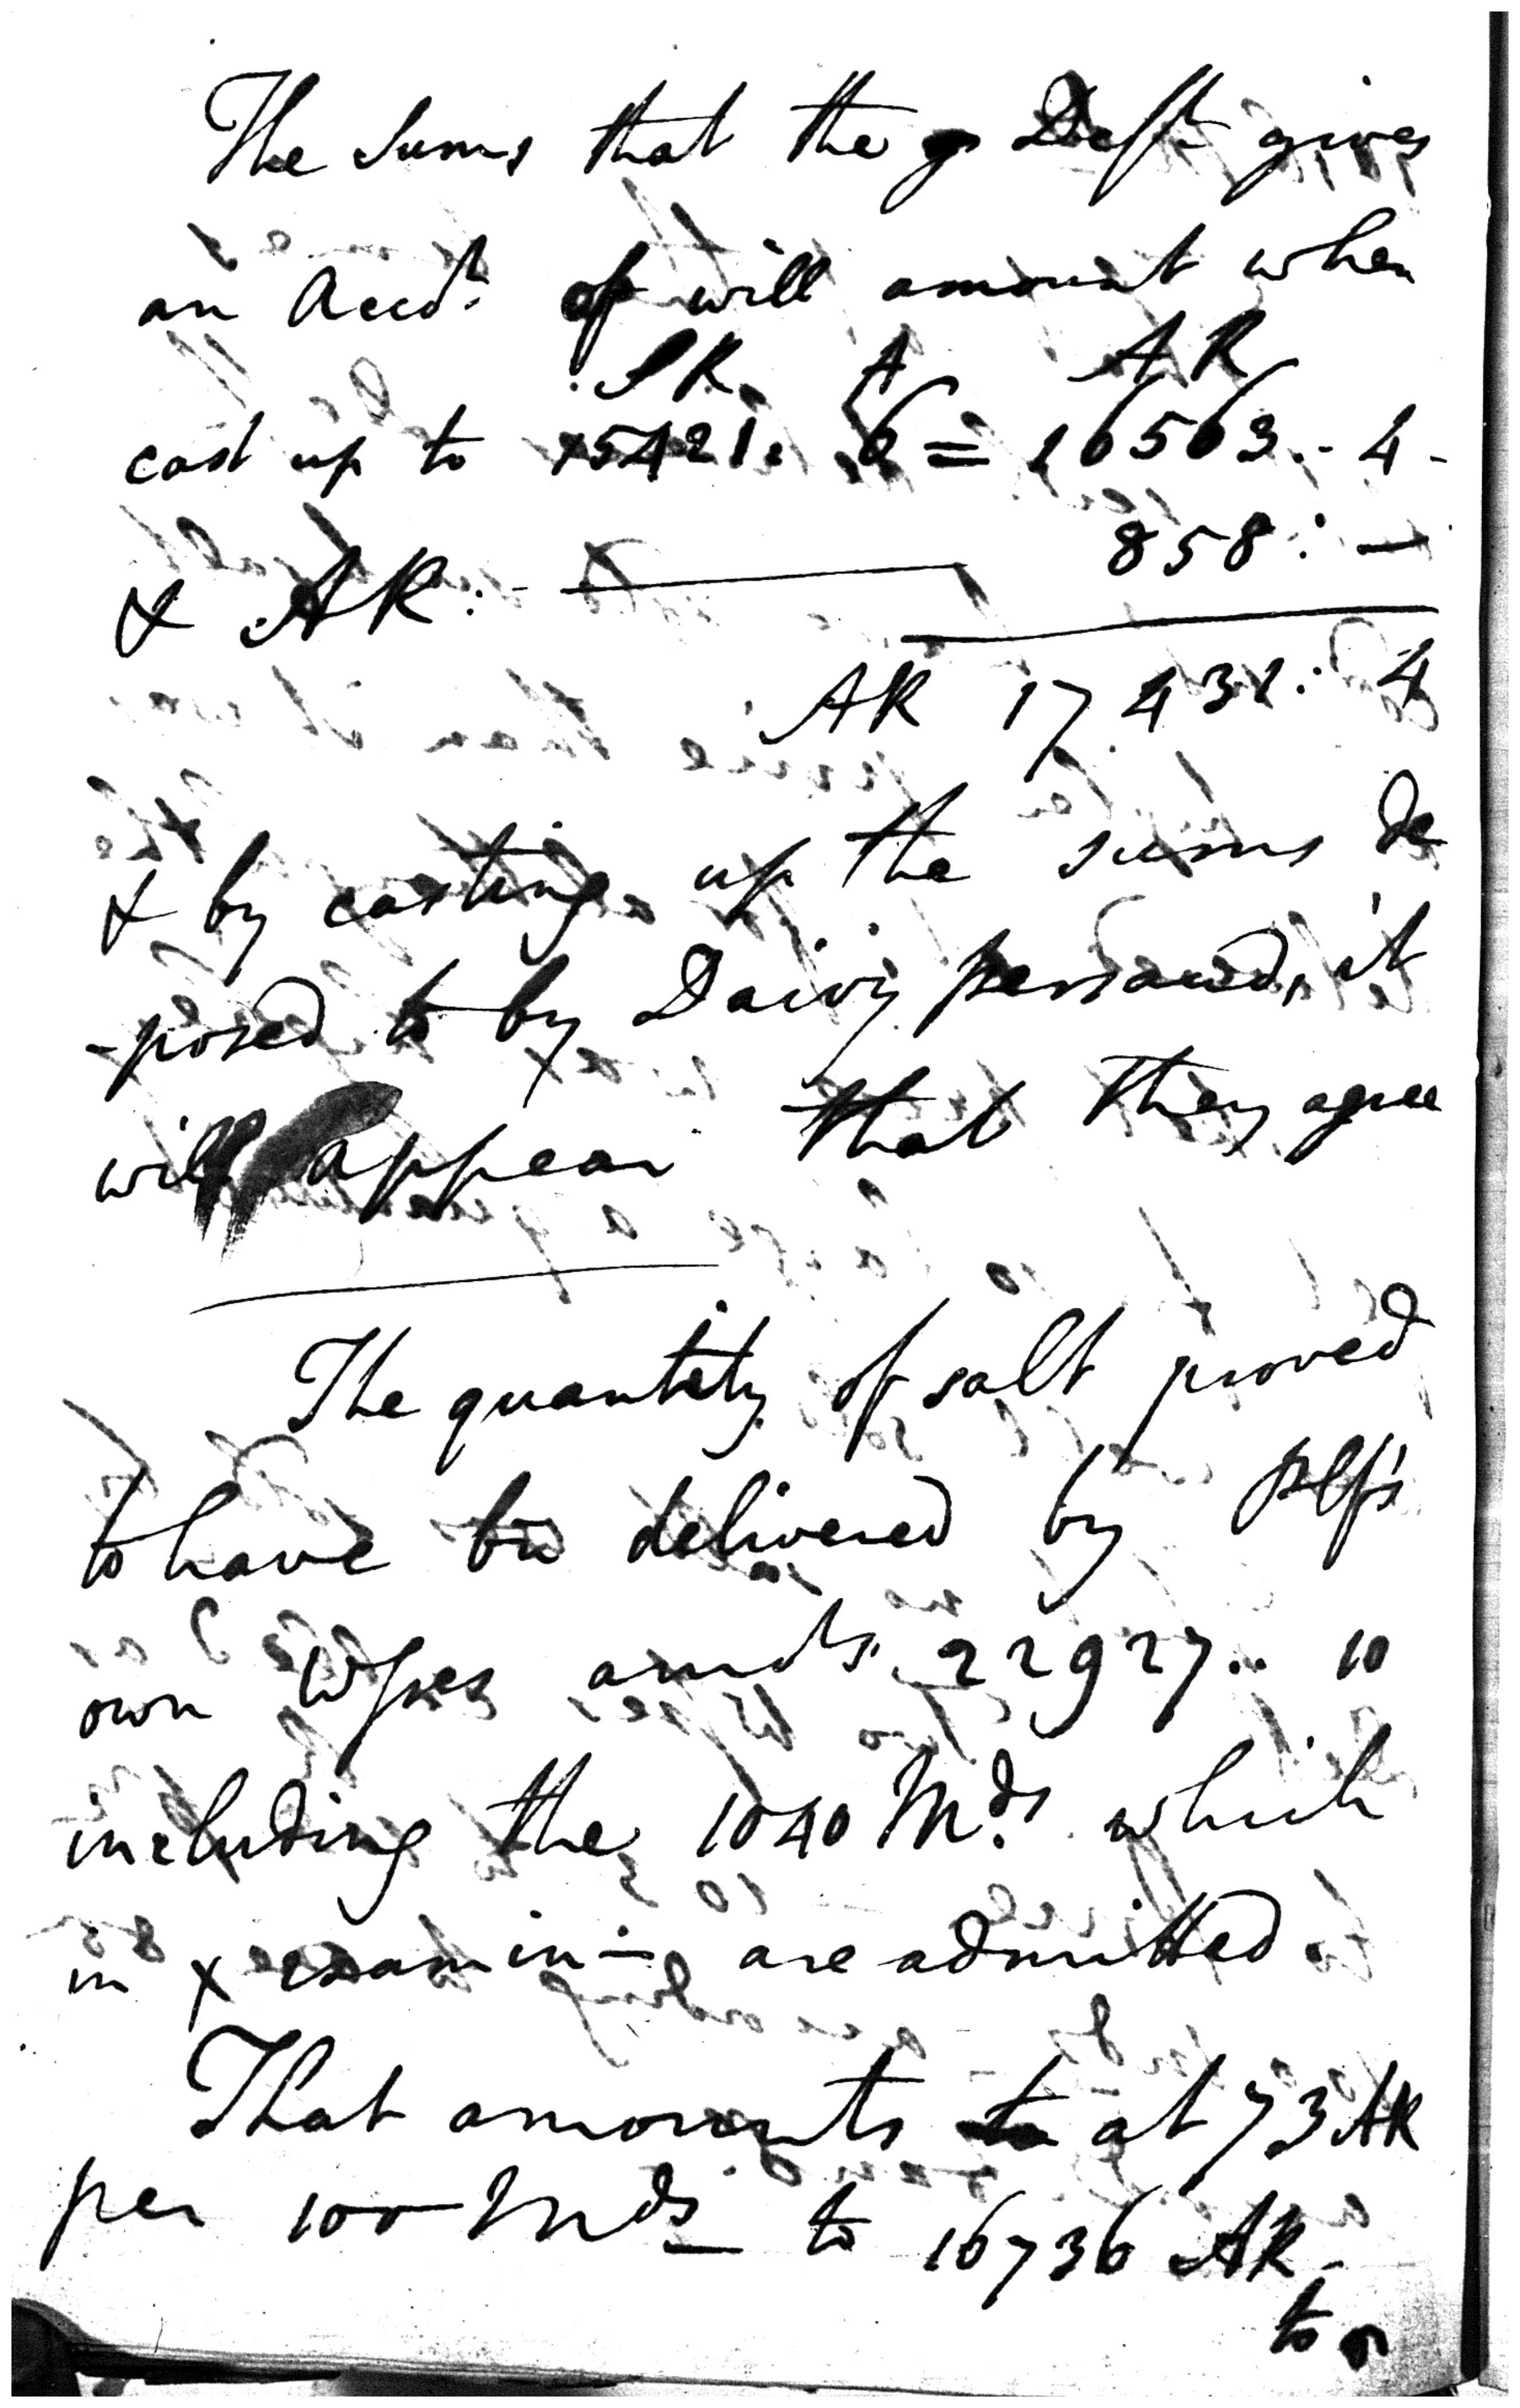 The Sums that the Deft gives
an Accot of will amount when
SR A AR
cast up to 15421. 6 = 16563.. 4 -
& AR :- 858 : —
AR 17431 : 4
& by casting up the sums de
-posed to by Daivy persaud, it
will appear that they agree
The quantity of salt proved
to have bn delivered by Plfs
own Wses amds 22927.. 10
including the 1040 Mds which
in x examin÷ are admitted.
That amounts to at 73 AR
per 100 Mds to 16736 AR -
to